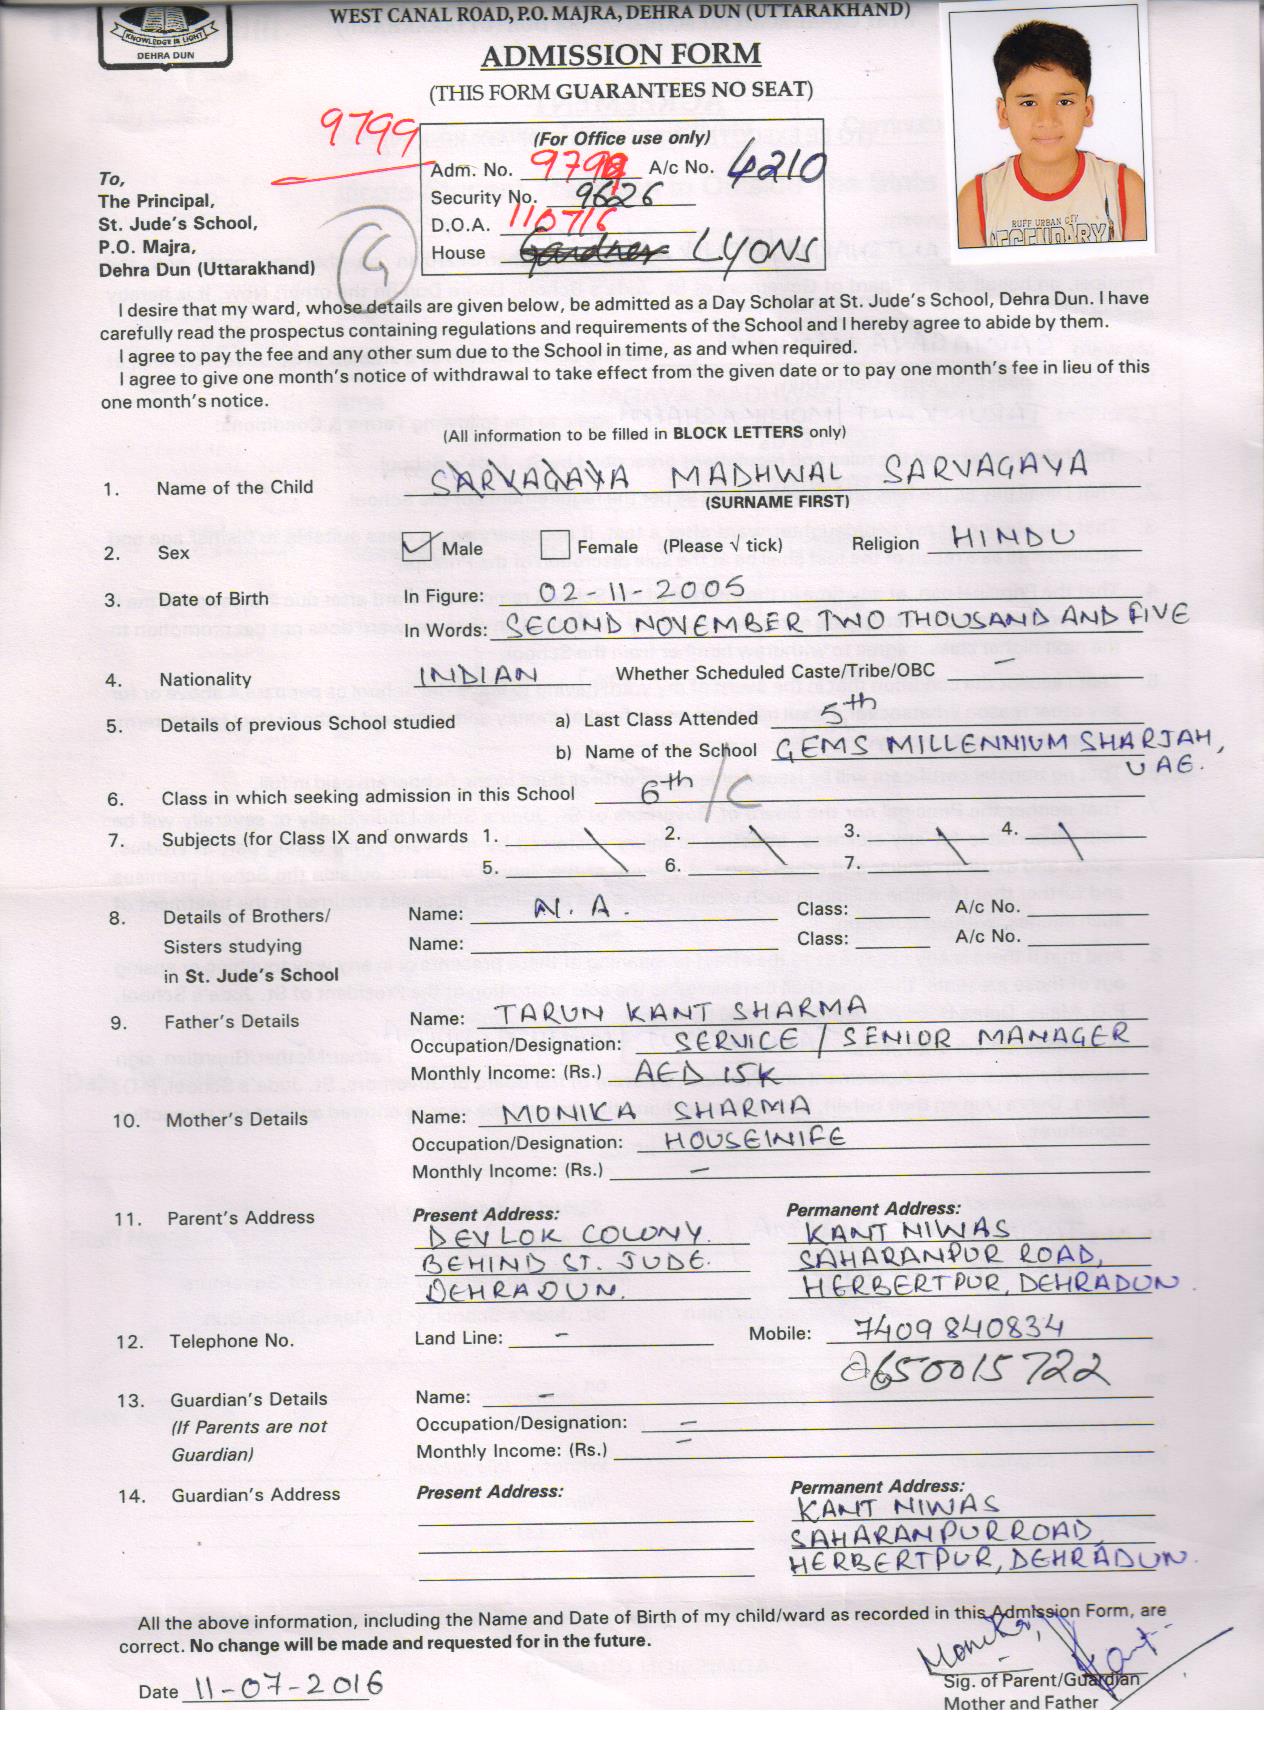 WEST CANAL ROAD, P.O. MAJRA, DEHRA DUN (UTTARAKHAND)
KNOWLEDGE IS LIGHT
DEHRA DUN
ADMISSION FORM
(THIS FORM GUARANTEES NO SEAT)
9799
(For Office use only)
Adm. No. 9799 A/c No. 4210
Security No. 9626
D.O.A. 110716
House Gardner LYONS
G
RUFF URBAN CITY
To,
The Principal,
St. Jude's School,
P.O. Majra,
Dehra Dun (Uttarakhand)
I desire that my ward, whose details are given below, be admitted as a Day Scholar at St. Jude's School, Dehra Dun. I have
carefully read the prospectus containing regulations and requirements of the School and I hereby agree to abide by them.
I agree to pay the fee and any other sum due to the School in time, as and when required.
I agree to give one month's notice of withdrawal to take effect from the given date or to pay one month's fee in lieu of this
one month's notice.
(All information to be filled in BLOCK LETTERS only)
1. Name of the Child SARVAGAYA MADHWAL SARVAGAYA
(SURNAME FIRST)
2. Sex Male Female (Please √ tick) Religion HINDU
3. Date of Birth In Figure: 02-11-2005
In Words: SECOND NOVEMBER TWO THOUSAND AND FIVE
4. Nationality INDIAN Whether Scheduled Caste/Tribe/OBC –
5. Details of previous School studied a) Last Class Attended 5th
b) Name of the School GEMS MILLENNIUM SHARJAH,
UAE.
6. Class in which seeking admission in this School 6th /C
7. Subjects (for Class IX and onwards 1. \ 2. \ 3. \ 4. \
5. 6. 7.
8. Details of Brothers/ Name: N.A. Class: A/c No.
Sisters studying Name: Class: A/c No.
in St. Jude's School
9. Father's Details Name: TARUN KANT SHARMA
Occupation/Designation: SERVICE / SENIOR MANAGER
Monthly Income: (Rs.) AED 15K
10. Mother's Details Name: MONIKA SHARMA
Occupation/Designation: HOUSEWIFE
Monthly Income: (Rs.) –
11. Parent's Address Present Address: Permanent Address:
DEVLOK COLONY. KANT NIWAS
BEHIND ST. JUDE. SAHARANPUR ROAD,
DEHRADUN. HERBERTPUR, DEHRADUN.
12. Telephone No. Land Line: – Mobile: 7409840834
9650015722
13. Guardian's Details Name: –
(If Parents are not Occupation/Designation: –
Guardian) Monthly Income: (Rs.) –
14. Guardian's Address Present Address: Permanent Address:
KANT NIWAS
SAHARANPUR ROAD,
HERBERTPUR, DEHRADUN.
All the above information, including the Name and Date of Birth of my child/ward as recorded in this Admission Form, are
correct. No change will be made and requested for in the future.
Monika,
Date 11-07-2016 Sig. of Parent/Guardian
Mother and Father